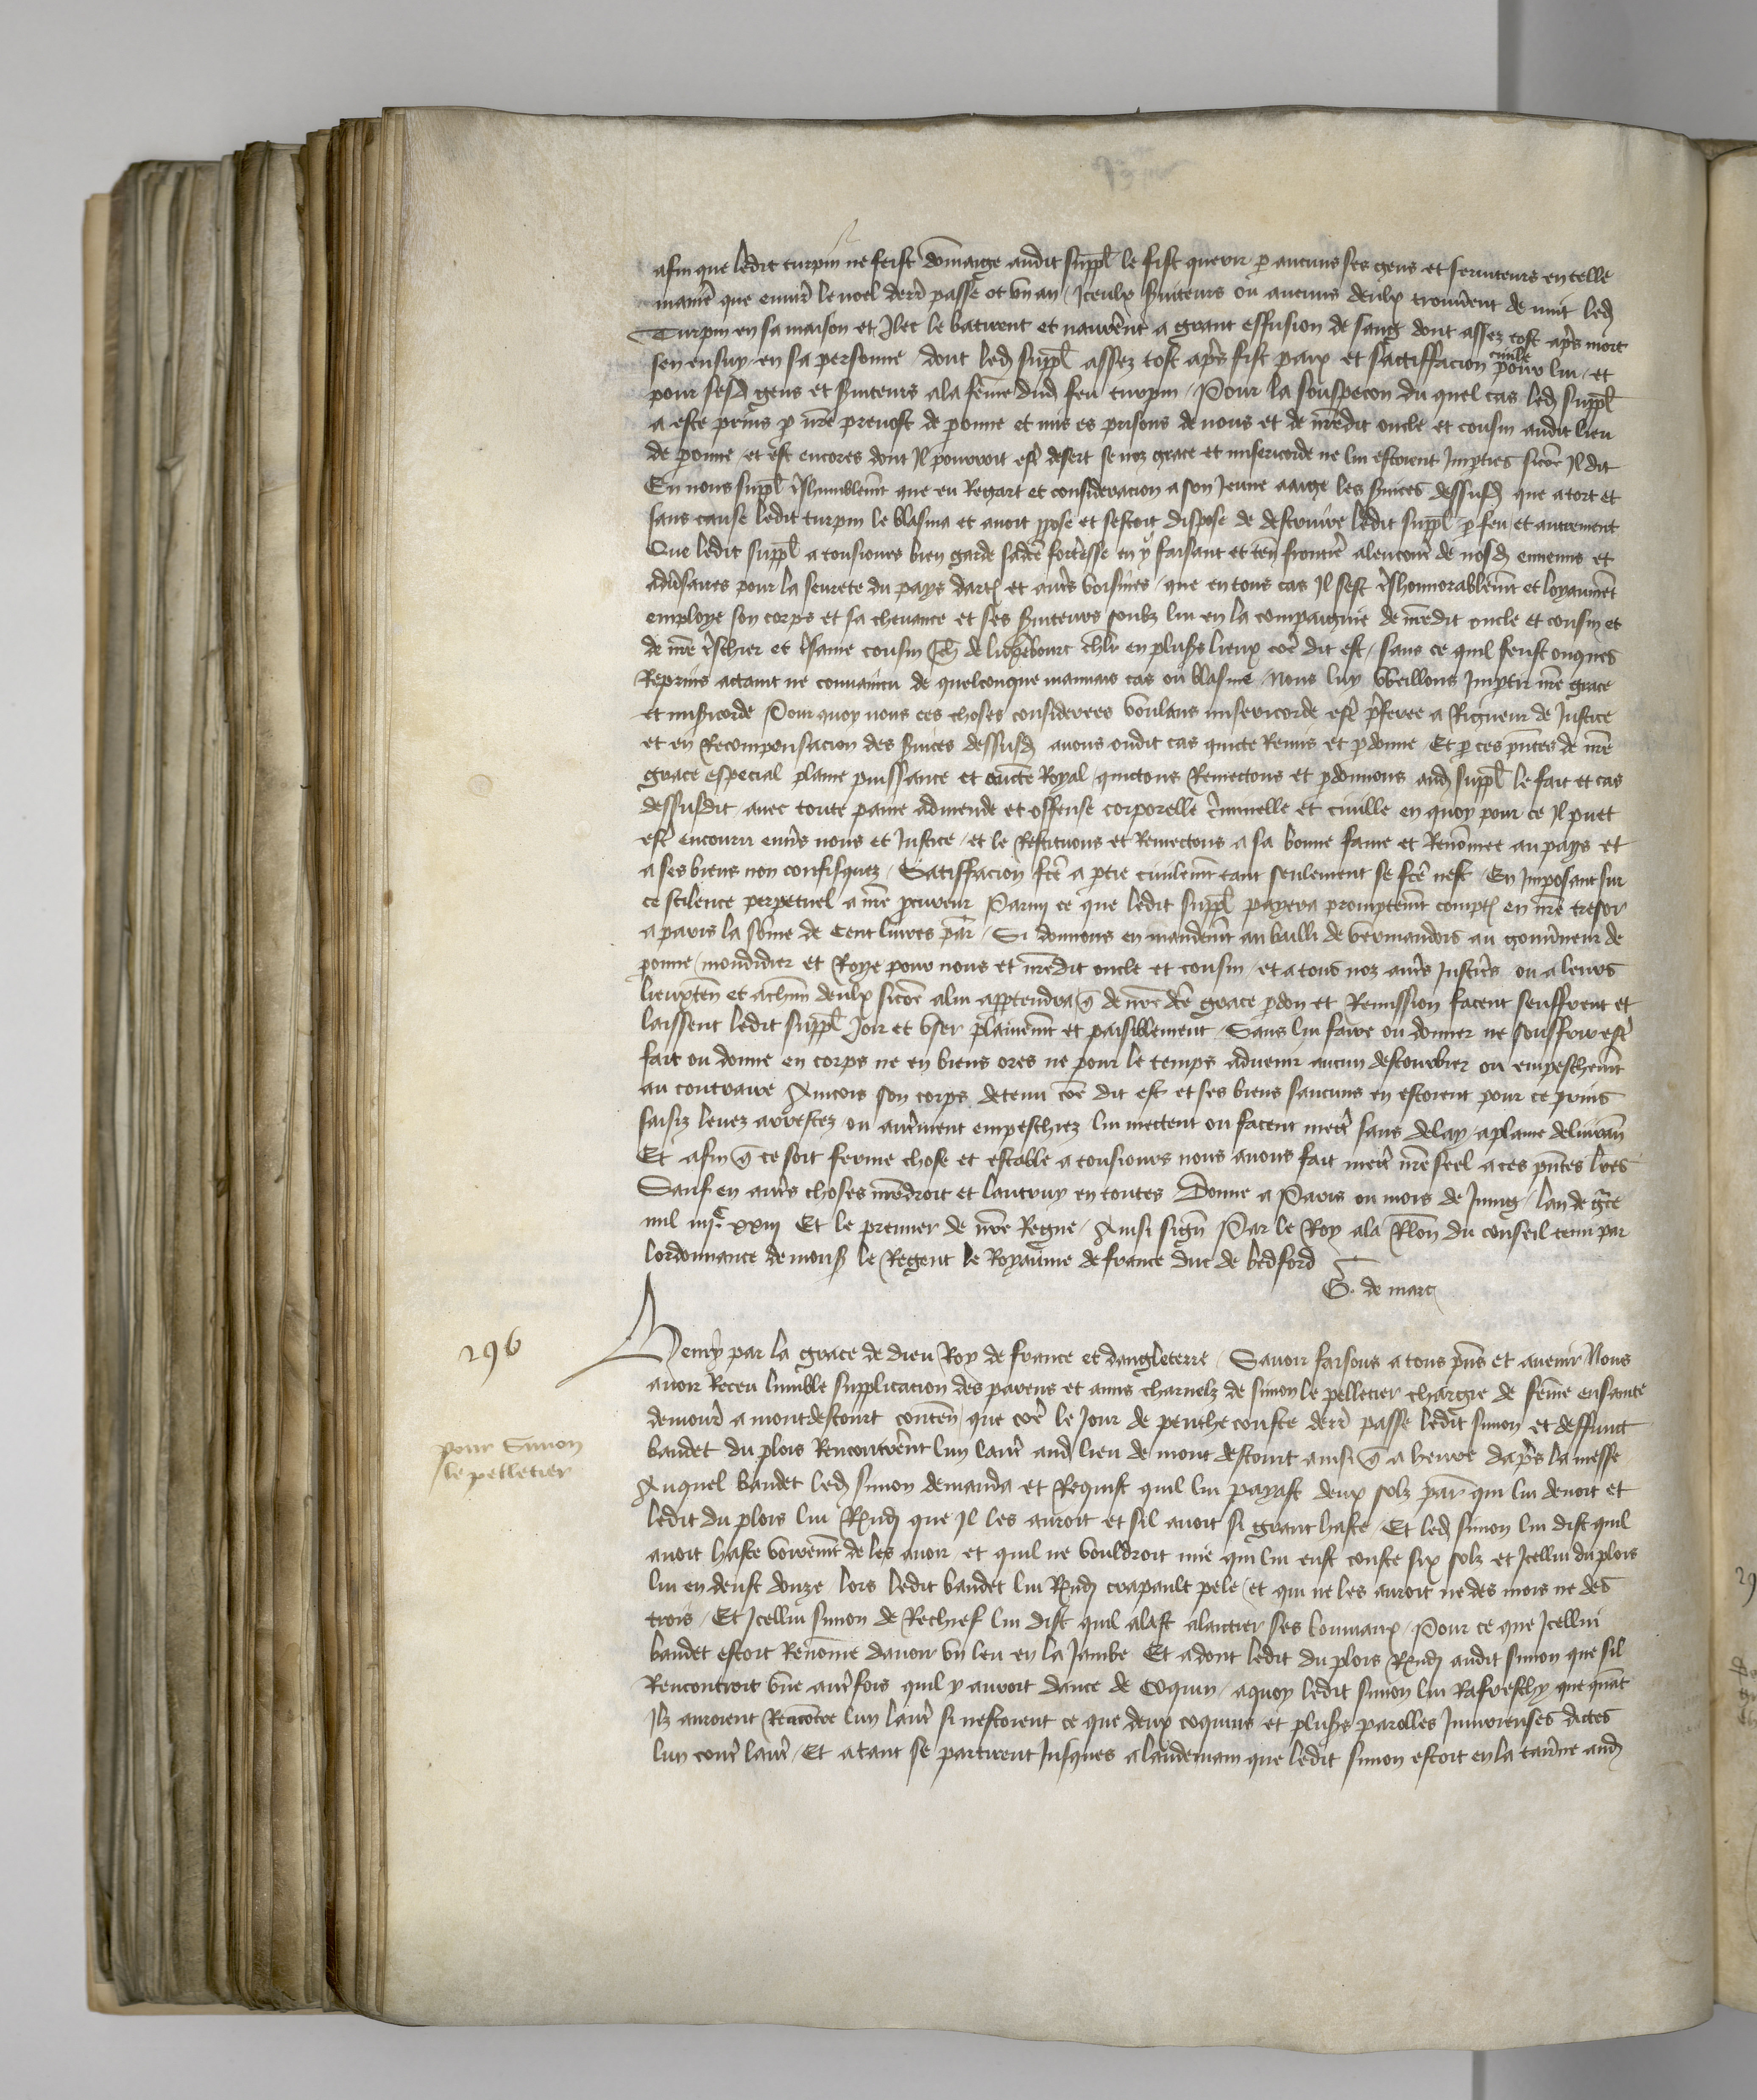 afin que ledit turpin ne feist dōmaige audit suppl̄ le fist querir p aucuns ses gens et seruiteurs en telle
manie͛ que enuirō le noel derr̄ passe ot vn an / Iceulx s͛uiteurs ou aucuns deulx trouue͛rent de nuit led̄
Turpin en sa maison et Ilec le batirent et naure͛rent a grant effusion de sang dont assez tost apr̄s mort
sen ensuy en sa personne dont led̄ suppl̄ assez tost apr̄s fist paix et sattiffacion ciuile pour lui / et
pour sesd̄ gens et s͛uiteurs a la fēme dud̄ feu turpin / Pour la souspecon du quel cas led̄ suppl̄
a este prins p nr̄e preuost de peronne et mis es prisons de nous et de nr̄edit oncle et cousin audit lieu
de peronne / et est encores dont Il pourroit estr̄ desert se noz grace et misericorde ne lui estoient Impties sicōe Il dit
En nous suppl̄ tr̄shumblemēt que eu Regart et consideracion a son Jeune aaige les s͛uices dessusd̄ que a tort et
sans cause ledit turpin le blasma et auoit ppose et sestoit dispose de destruire ledit suppl̄ p feu et autrement
Que ledit suppl̄ a tousiours bien garde sadc̄e fort͛resse en y faisant et ten̄ frontie͛ alencont͛ de nosd̄ ennemis et
adu͛saires pour la seurete du pays dart̄ et autr̄s voisines / que en tous cas Il sest tr̄shonnorablemēt et loyaumēt
employe son corps et sa cheuance et ses s͛uiteurs soubz lui en la compaignie de nr̄edit oncle et cousin et
de nr̄e tr̄schier et tr̄same cousin Jeh̄ de luxēbourc chlr̄ en plus͛s lieux cōe dit est / sans ce quil feust onques
Reprins attaint ne conuaincu de quelconque mauuais cas ou blasme / Nous luy vueillons Imptir nr̄e grace
et mis͛icorde Pour quoy nous ces choses considerees voulans misericorde estr̄ pr̄feree a Rigueur de Justice
et en Recompensacion des s͛uices dessusd̄ auons oudit cas quicte Remis et pdonne / Et p ces pn̄tes de nr̄e
grace especial plaine puissance et auctē Royal / quictons Remectons et pdonnons aud̄ suppl̄ le fait et cas
dessusdit / auec toute paine admende et offense corporelle cr̄iminelle et ciuille en quoy pour ce Il puet
estr̄ encouru enu͛s nous et Justice / et le Restituons et Remectons a sa bonne fame et Renōmee au pays et
a ses biens non confisquez / Satiffacion fcē a ptie ciuilemēt tant seulement se fcē nest / En Imposant sur
ce scilence perpetuel a nr̄e pcureur Parmi ce que ledit suppl̄ payera promptemēt compt̄ en nr̄e tresor
a paris la sōme de Cent liures par̄ / Si donnons en mandemt̄ au bailli de vermandois au gouu͛neur de
peronne / mondidier et Roye pour nous et nr̄edit oncle et cousin / et a tous noz autr̄s Justic͛s ou a leurs
lieuxten̄ et a chun̄ deulx sicōe a lui apptendra q̄ de nr̄e dcē grace pdon et Remission facent seuffrent et
laissent ledit suppl̄ Joir et vser plainemēt et paisiblement Sans lui faire ou donner ne souffrir estr̄
fait ou donne en corps ne en biens ores ne pour le temps aduenir aucun destourbier ou empeschemēt
au contraire Aincois son corps detenu cōe dit est et ses biens saucuns en estoient pour ce prins
saisiz leuez arrestez ou autr̄ment empeschiez lui mettent ou facent mettr̄ sans delay a plaine deliuran̄
Et afin q̄ ce soit ferme chose et estable a tousiours nous auons fait mettr̄ nr̄e seel a ces pn̄tes lr̄es
Sauf en autr̄s choses nr̄e droit et lautruy en toutes Donne a Paris ou mois de Juing / lan de gr̄ce
mil iiijᶜ xxiij Et le premier de nr̄e Regne / Ainsi sign̄ Par le Roy a la Rlōn du conseil tenu par
lordonnance de mons͛ le Regent le Royaume de france duc de bedford
G. de marc
296
Henry par la grace de dieu Roy de france et dangleterre / Sauoir faisons a tous pn̄s et auenir Nous
auoir Receu lumble supplicacion des parens et amis charnelz de simon le pelletier chargie de fēme ensainte
demour̄ a montdescourt conten̄ / que cōe le Jour de penthecouste derr̄ passe ledit simon et deffunct
baudet du plois Rencontre͛rent lun lautr̄ aud̄ lieu de mont descourt ainsi q̄ a heure dapr̄s la messe
pour Simon
le pelletier
Auquel baudet led̄ simon demanda et Requist quil lui payast deux solz par̄ qui lui deuoit et
ledit du plois lui Rn̄d̄ que Il les auroit et sil auoit si grant haste / Et led̄ simon lui dist quil
auoit haste voirement de les auoir / et quil ne vouldroit mie qui lui eust couste six solz et Icellui du plois
lui en deust douze lors ledit baudet lui Rn̄d̄ crapault pele / et qui ne les auroit ne des mois ne des
trois / Et Icellui simon de Rechief lui dist quil alast alaictier ses louuiaux / Pour ce que Icellui
baudet estoit Renōme dauoir vn leu en la Jambe Et adont ledit du plois Rn̄d̄ audit simon que sil
Rencontroit vn̄e autr̄fois quil y auroit dance de Coquin / aquoy ledit simon lui Rafreschy que quāt
Ilz auroient Rencōtre lun lautr̄ si nestoient ce que deux coquins et plus͛s parolles Iniurieuses dictes
lun contr̄ lautr̄ / Et atant se partirent Jusques a landemain que ledit simon estoit en la tau͛ne aud̄